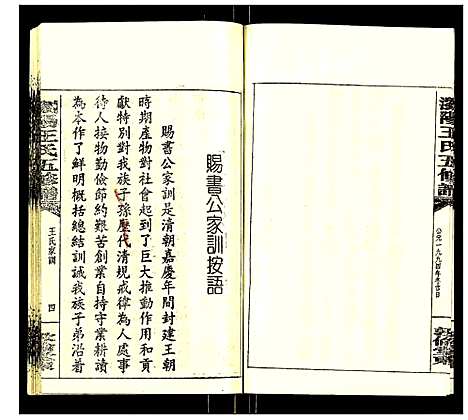 瀏陽王氏五修譜
公元一九九四年冬吉日
賜書公家訓按語
賜書公家訓是清朝嘉慶年間封建王朝
時期產物對社會起到了巨大推動作用和貢
獻特別對我族子孫歷代清規戒律為人處事
待人接物勤儉節約艱苦創業自持守業耕讀
為本作了鮮明概括總結訓誡我族子弟沿着
瀏陽王氏五修譜
王氏家訓
四